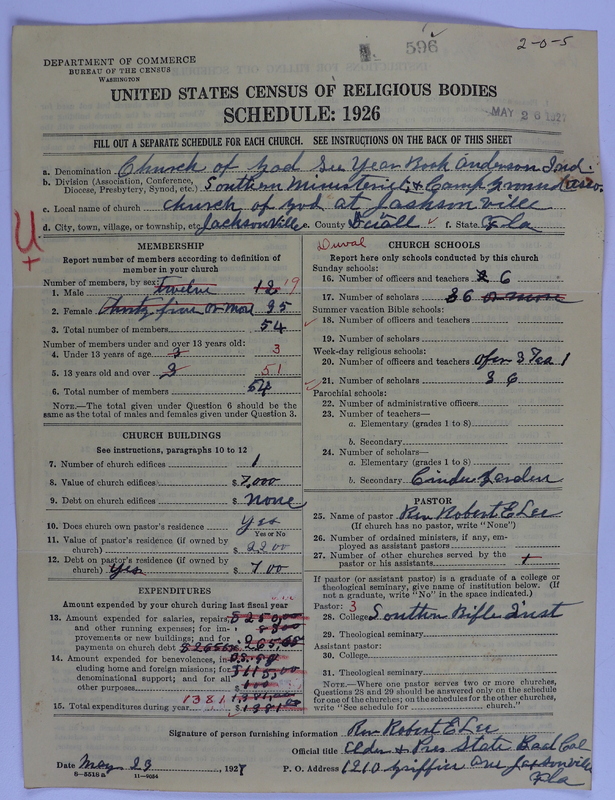 596
2-0-5
DEPARTMENT OF COMMERCE
BUREAU OF THE CENSUS
WASHINGTON
UNITED STATES CENSUS OF RELIGIOUS BODIES
SCHEDULE: 1926
MAY 26 192
FILL OUT A SEPARATE SCHEDULE FOR EACH CHURCH. SEE INSTRUCTIONS ON THE BACK OF THIS SHEET
a. Denomination Church of God See Year Book Anderson Ind
b. Division (Association, Conference, Diocese, Presbytery, Synod, etc.) Southern Ministerial & Camp Ground
c. Local name of church Church of God at Jacksonville
d. City, town, village, or township, etc. Jacksonville e. County Duall f. State Fla
U
+
MEMBERSHIP
Report number of members according to definition of
member in your church
Number of members, by sex:
1. Male twelve 12 19
2. Female Thirty five or more 35
3. Total number of members 54
Number of members under and over 13 years old:
4. Under 13 years of age 3 3
5. 13 years old and over 3 51
6. Total number of members 54
NOTE.—The total given under Question 6 should be the
same as the total of males and females given under Question 3.
CHURCH BUILDINGS
See instructions, paragraphs 10 to 12
7. Number of church edifices 1
8. Value of church edifices $ 7,000
9. Debt on church edifices $ None
10. Does church own pastor's residence Yes
Yes or No
11. Value of pastor's residence (if owned by
church) $ 2200
12. Debt on pastor's residence (if owned by
church) Yes $ 700
EXPENDITURES
Amount expended by your church during last fiscal year
13. Amount expended for salaries, repairs,
and other running expenses; for im-
provements or new buildings; and for
payments on church debt
14. Amount expended for benevolences, in-
cluding home and foreign missions; for
denominational support; and for all
other purposes
1381
15. Total expenditures during year $ 1381.00
Duval
CHURCH SCHOOLS
Report here only schools conducted by this church
Sunday schools:
16. Number of officers and teachers 6
17. Number of scholars 36 or more
Summer vacation Bible schools:
18. Number of officers and teachers
19. Number of scholars
Week-day religious schools:
20. Number of officers and teachers 3 Tea 1
21. Number of scholars 36
Parochial schools:
22. Number of administrative officers
23. Number of teachers—
a. Elementary (grades 1 to 8)
b. Secondary
24. Number of scholars—
a. Elementary (grades 1 to 8)
b. Secondary Cinder Garden
PASTOR
25. Name of pastor Rev Robert E Lee
(If church has no pastor, write "None")
26. Number of ordained ministers, if any, em-
ployed as assistant pastors
27. Number of other churches served by the
pastor or his assistants 1
If pastor (or assistant pastor) is a graduate of a college or
theological seminary, give name of institution below. (If
not a graduate, write "No" in the space indicated.)
Pastor: 3
28. College Southern Bible Inst
29. Theological seminary
Assistant pastor:
30. College
31. Theological seminary
NOTE.—Where one pastor serves two or more churches,
Questions 28 and 29 should be answered only on the schedule
for one of the churches; on the schedules for the other churches,
write "See schedule for church."
Signature of person furnishing information Rev Robert E Lee
Official title Elder & Pres State
Date May 23, 1927 P. O. Address 1210 Griffin Ave Jacksonville
Fla
8-5518 a 11-9054